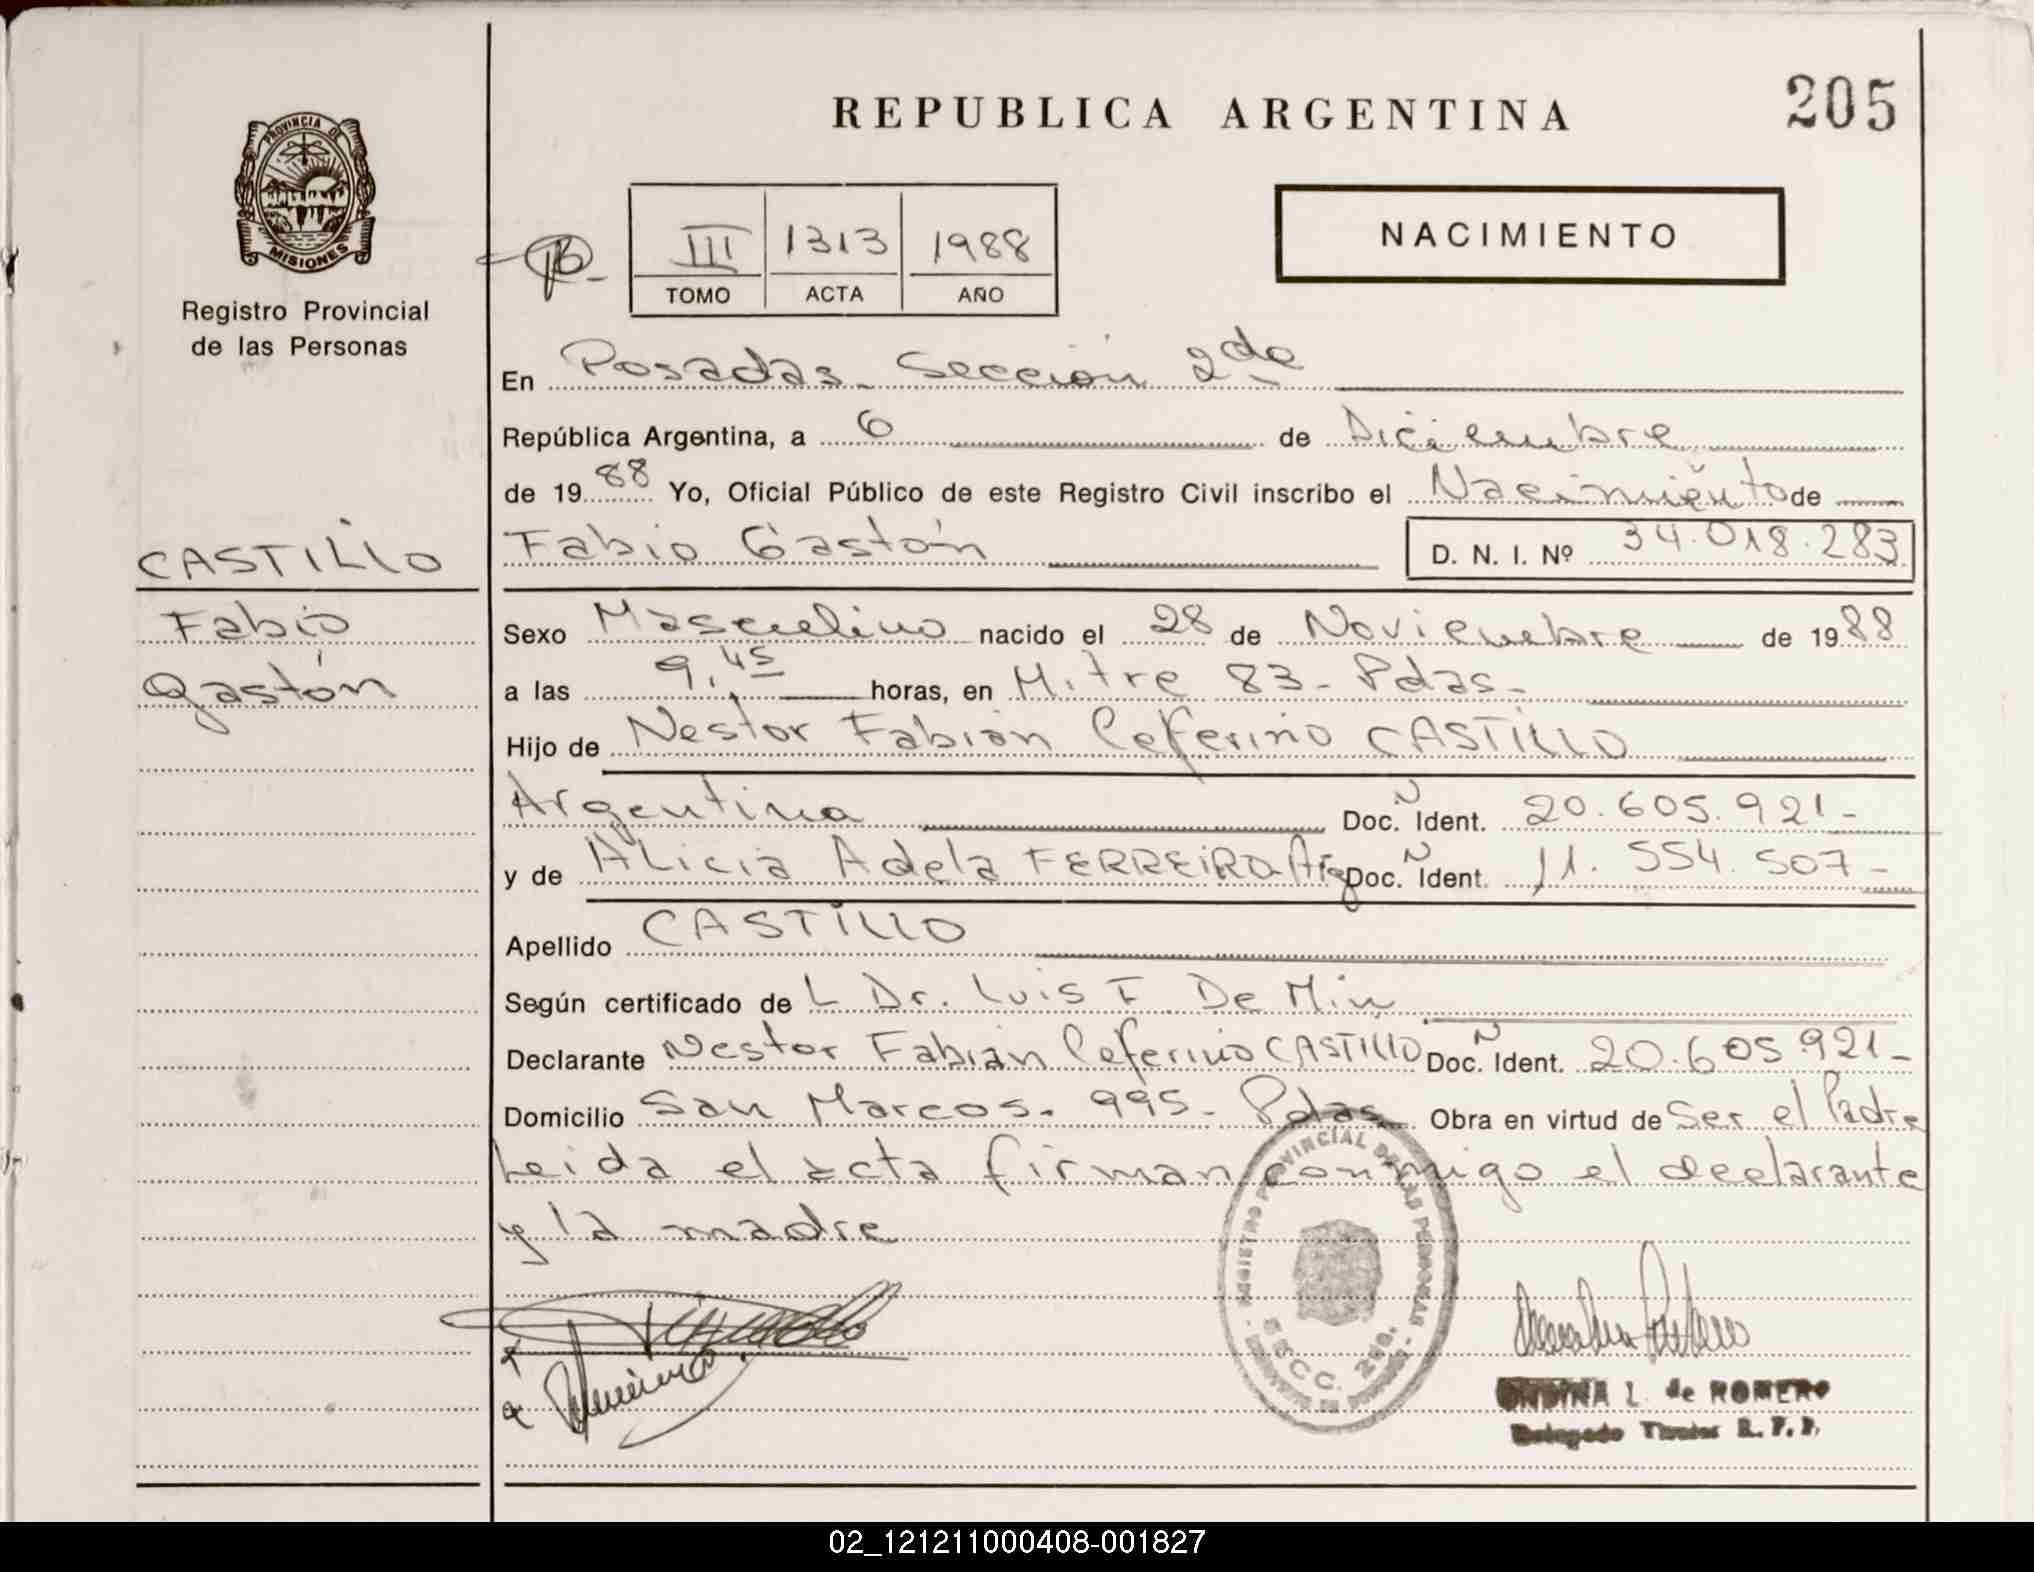 REPUBLICA ARGENTINA
205
PROVINCIA DE
MISIONES
Registro Provincial
de las Personas
III 1313 1988
TOMO ACTA AÑO
NACIMIENTO
En Posadas. Sección 2da
República Argentina, a 6 de Diciembre
de 1988 Yo, Oficial Público de este Registro Civil inscribo el Nacimiento de
CASTILLO
Fabio Gastón D. N. I. Nº 34.018.283
Fabio
Gastón
Sexo Masculino nacido el 28 de Noviembre de 1988
a las 9,45 horas, en Mitre 83 - Pdas -
Hijo de Nestor Fabián Ceferino CASTILLO
Argentina Doc. N Ident. 20.605.921-
y de Alicia Adela FERREIRO. Arg Doc. N Ident. 11.554.507-
Apellido CASTILLO
Según certificado de L Dr. Luis F. De Min
Declarante Nestor Fabián Ceferino CASTILLO Doc. N Ident. 20.605.921-
Domicilio San Marcos. 995 - Pdas Obra en virtud de Ser el Padre
Leida el acta firman conmigo el declarante
y la madre
REGISTRO PROVINCIAL DE LAS PERSONAS
SECC. 2da.
ONDINA L. de ROMERO
Delegado Titular R. P. P.
02_121211000408-001827